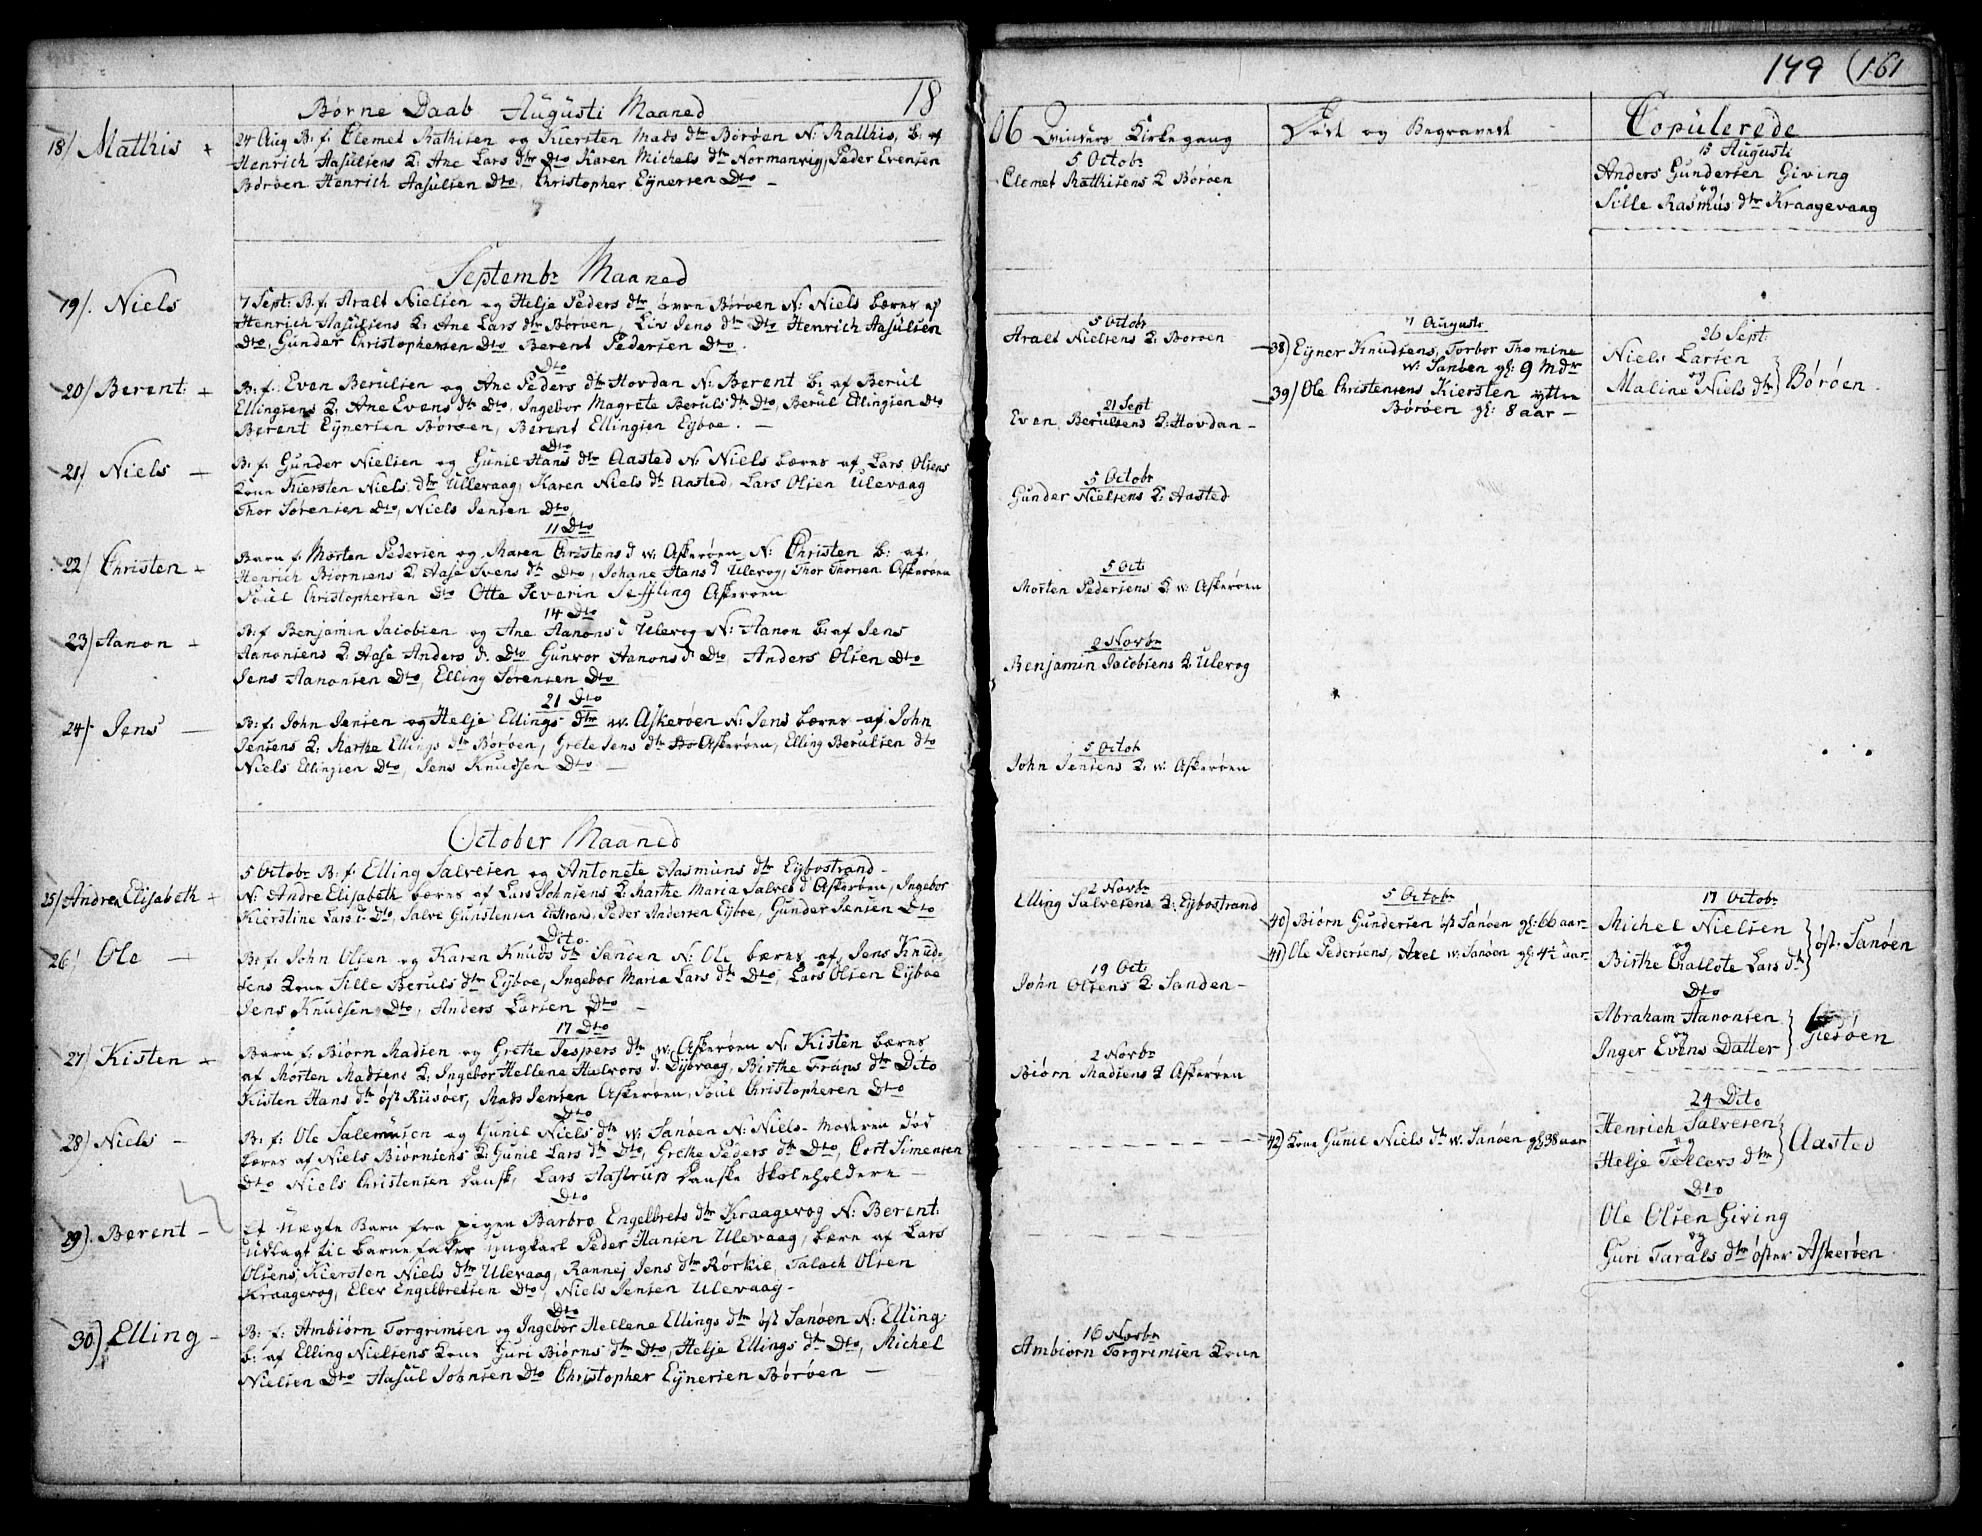 Børne Daab Augusti Maaned 18
18/ Mathis +
24 Aug B: f: Clemet Mathisen og Kiersten Mads dtr Børøen N: Matthis, b: af
Henrich Aasulsens K: Ane Lars dtr Dto Karen Michels dtr Normanvig, Peder Evensen
Børøen Henrich Aasulsen Dto, Christopher Eynersen Dto –
Septembr Maaned
19/. Niels
7 Sept: B: f: Aralt Nielsen og Helje Peders dtr Børøen N: Niels bæres af
Henrich Aasulsens K: Ane Lars dtr Børøen, Liv Jens dtr Dto Henrich Aasulsen
Dto, Gunder Christophersen Dto Berent Pedersen Dto.
Dto
20/ Berent: +
B: f: Even Berulsen og Ane Peders dtr Hovdan N: Berent b: af Berul
Ellingsens K: Ane Evens dtr Dto, Ingebor Magrete Beruls dtr Dto, Berul Ellingsen Dto
Berent Eynersen Børøen, Berent Ellingsen Eyboe. –
Dto
21/ Niels –
B: f: Gunder Nielsen og Gunil Hans dtr Aasted N: Niels bæres af Lars Olsens
Kone Kiersten Niels dtr Ullevaag, Karen Niels dt Aasted, Lars Olsen Ulevaag
Thor Sørensen Dto, Niels Jensen Dto,
11 Dto
22/ Christen +
Barn f: Morten Pedersen og Maren Christens d w: Askerøen N: Christen b: af
Henrich Biornsens K: Aase Svens dt Dto, Johane Hans d Ulevog, Thor Thorsen Askerøen
Poul Christophersen Dto Otte Severin Seffling Askerøen
14 Dto
23/ Aanon +
B: f Benjamin Jacobsen og Ane Aanons d Ulevog N: Aanon b: af Jens
Aanonsens K: Aase Anders d: Dto Gunvor Aanons d Dto, Anders Olsen Dto
Jens Aanonsen Dto, Elling Sørensen Dto
21 Dto
24/ Jens –
B: f: John Jensen og Helje Ellings dtr w: Askerøen N: Jens bæres af John
Jensens K: Marthe Ellings dtr Børøen, Grete Jens dtr Askerøen, Elling Berulsen dto
Niels Ellingsen Dto, Jens Knudsen Dto –
October Maaned
25/ Andrea Elisabeth +
5 Octobr B: f: Elling Salvesen og Antonete Aasmuns dtr Eybostrand –
N: Andre Elisabeth bæres af Lars Johnsens K: Marthe Maria Salves d Askerøen, Ingebor
Kierstine Lars d: Dto, Salve Gunstensen Eistrand, Peder Andersen Eyboe, Gunder Jensen Dto
Dito
26/ Ole –
B: f: John Olsen og Karen Knuds dtr Sanden N: Ole bæres af Jens Knud-
sens Kone Sille Beruls dtr Eyboe, Ingebor Maria Lars dt Dto, Lars Olsen Eyboe
Jens Knudsen Dto, Anders Larsen Dto –
17 Dto
27/ Kisten +
Barn f: Biørn Madsen og Grethe Jespers dtr w: Askerøen N: Kisten bæres
af Morten Madsens K: Ingebor Hellene Halvors d: Dybvaag, Birthe Frans dtr Dito
Kisten Hans dtr øst Riisøer, Mads Jensen Askerøen, Poul Christopheren Dto
Dto
28/ Niels –
B: f: Ole Salemusen og Gunil Niels dt w: Sanøen N: Niels – Moderen død
bæres af Niels Biørnsens K: Gunil Lars dtr Dto, Grethe Peders dtr Dto, Cort Simensen
Dto Niels Christensen Dansk, Lars Aastrup Danske Skoleholdere –
Dto
29). Berent –
Et uægte Barn fra pigen Barbro Engelbrets dtr Kraagevog N: Berent:
udlagt til barnefader ungkarl Peder Hansen Ulevaag, bæres af Lars
Olsens, Kiersten Niels dtr Ulevaag, Rannej Jens dtr Rørkie, Talach Olsen
Kraagevog, Elev Engelbretsen Dto, Niels Jensen Ulevaag –
Dto
30) Elling –
B: f: Ambiørn Torgrimsen og Ingebor Hellene Ellings dtr øst Sanøen N: Elling
b: af Elling Nielsens Kone Guri Biørns dtr Dto, Helje Ellings dtr Dto, Michel
Nielsen Dto Aasul Johnsen Dto Christopher Eynersen Børøen –
149 (161
06 Qvinders Kirkegang
5 Octobr
Clemet Matthisens K Børøen
5 Octobr
Aralt Nielsens K: Børøen
21 Sept
Even Berulsens K: Hovdan –
5 Octobr
Gunder Nielsens K: Aasted
5 Oct:
Morten Pedersens K w: Askerøen
2 Novbr
Benjamin Jacobsens K Ulevog
5 Octob
John Jensens K: w: Askerøen
2 Novbr
Elling Salvesens K: Eybostrand
19 Oct:
John Olsens K: Sanden –
2 Novbr
Biørn Madsens K Askerøen
16 Novbr
Ambiørn Torgrimsen Kone
Døde og Begravede
7 Augusti
38) Eyner Knudsens, Torbor Thomine
w: Sanøen gl: 9 Mdr
39) Ole Christensens Kiersten yttre
Børøen gl: 8 aar –
5 Octobr
40) Biørn Gundersen øst Sanøen gl: 66 aar
41) Ole Pedersens, Axel w: Sanøen gl: 4½ aar
42) Kone Gunil Niels dt w: Sanøen gl: 38 aar
Copulerede
15 Augusti
Anders Gundersen Giving
og
Sille Rasmus dtr Kraagevaag
26 Sept
Niels Larsen
og
Maline Niels dtr } Børøen –
17 Octobr
Michel Nielsen
og
Birthe Challote Lars dt } øst. Sanøen
Dto
Abraham Aanonsen
og
Inger Evens Datter } Giesøen
24 Dito
Henrich Salvesen
og
Helje Tellefs dtr } Aasted
Dto
Ole Olsen Giving
og
Guri Tarals dtr øster Askerøen